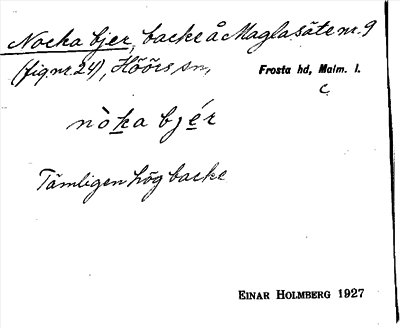 Nocka bjer, backe å Maglasäte nr. 9
(fig nr. 24), Höörs sn,
Frosta hd, Malm. l.
c.
nòka bjér
Tämligen hög backe
EINAR HOLMBERG 1927